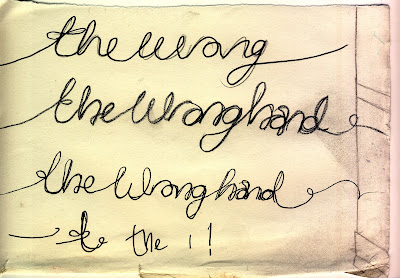 the wrong
the Wrong hand
the Wrong hand
the !